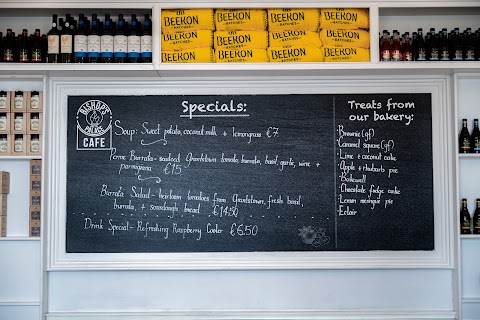 BEEKON
BATCHES
BEEKON
BATCHES
BEEKON
BATCHES
BEEKON
BATCHES
BISHOP'S
CAFÉ
Specials:
Soup: Sweet potato, coconut milk + lemongrass €7
Penne Burrata - seafood, Grantstown tomato, burrata, basil, garlic, wine +
parmigiana €15
Burrata Salad - heirloom tomatoes from Grantstown, fresh basil,
burrata, + sourdough bread €14.50
Drink Special - Refreshing Raspberry Cooler €6.50
Treats from
our bakery:
·Brownie (gf)
·Caramel square (gf)
·Lime + coconut cake
·Apple + rhubarb pie
·Bakewell
·Chocolate fudge cake
·Lemon meringue pie
·Eclair